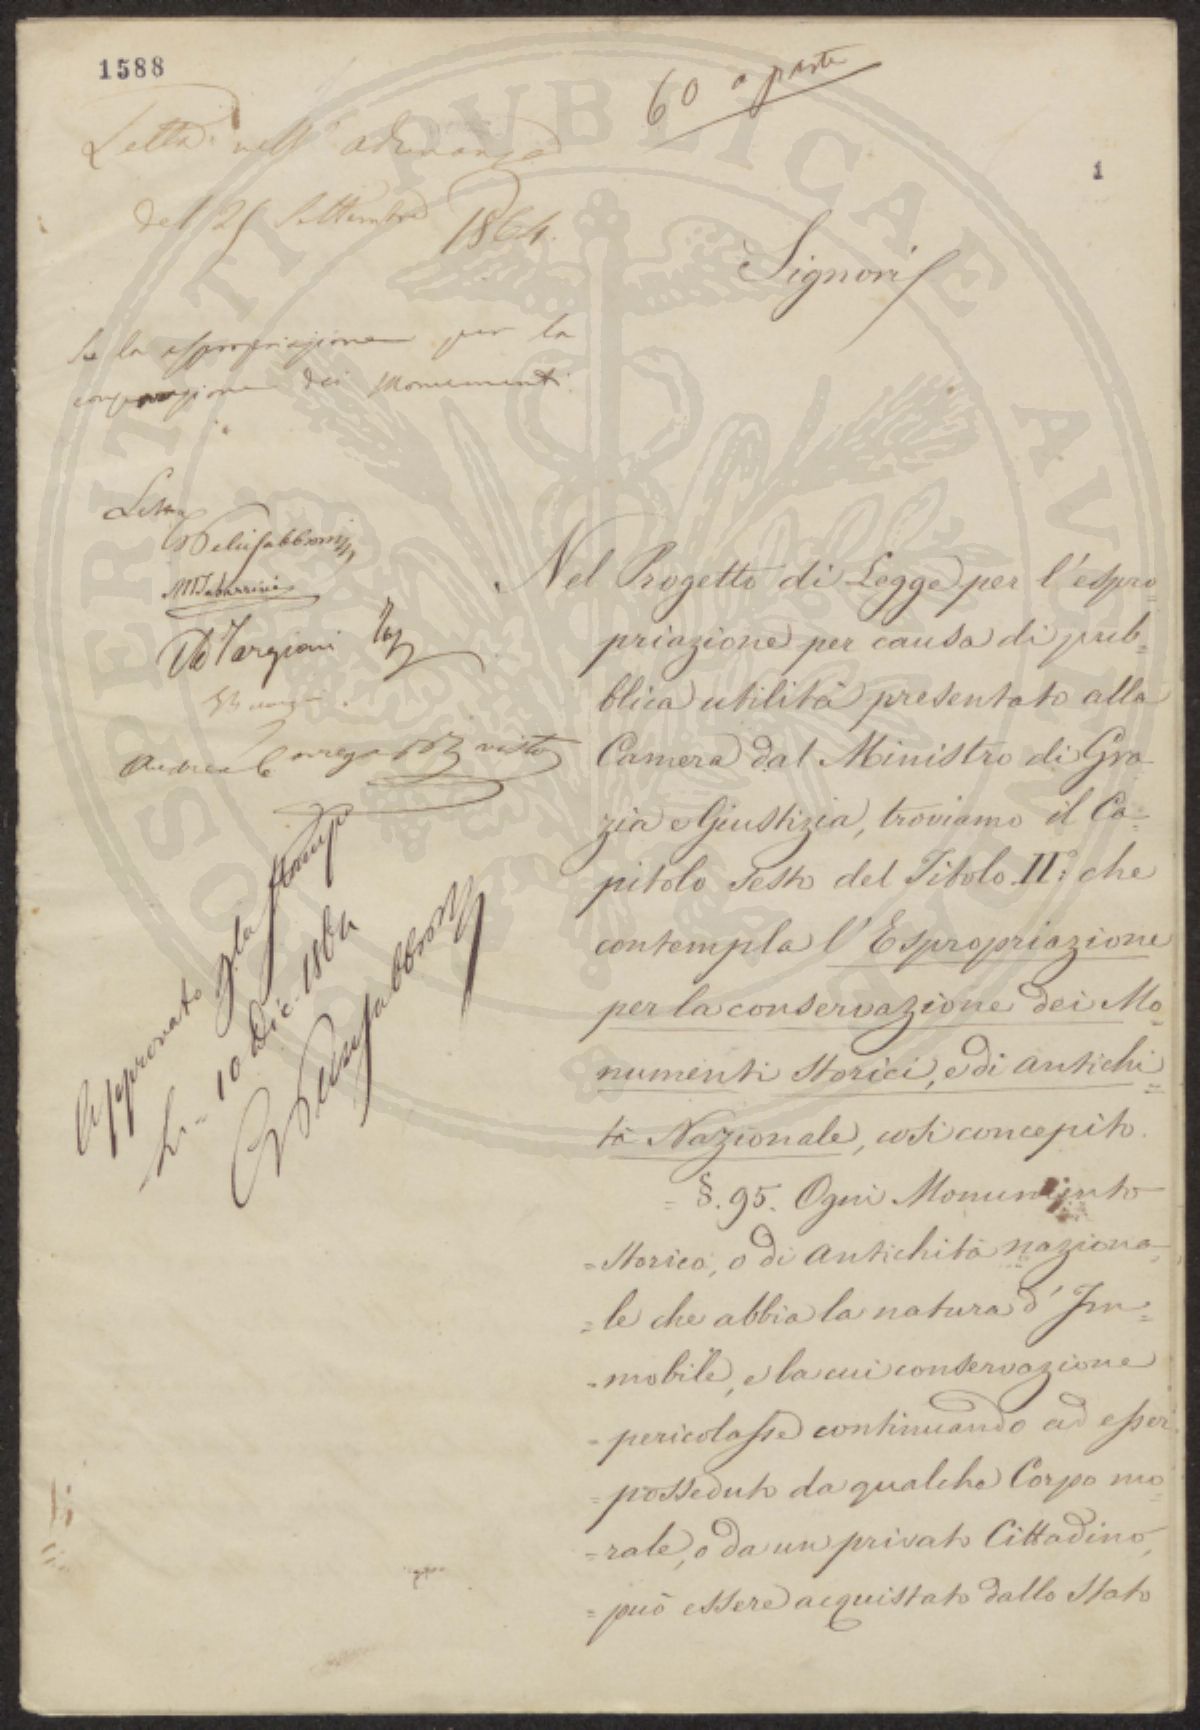 1588
60 a parte
1
Letta nell' adunanza
del 25 Settembre 1864.
Signori
Su la espropriazione per la
conservazione dei Monumenti
Letta
Pelli Fabbroni
M Tabarrini
A Targioni Toz
Andrea Corvegna visto
Approvato p la stampa
Li - 10 Dic. 1864
Pelli Fabbroni
Nel Progetto di Legge per l'espro=
priazione per causa di pub=
blica utilità presentato alla
Camera dal Ministro di Gra=
zia e Giustizia, troviamo il Ca=
pitolo Sesto del Titolo II.° che
contempla l'Espropriazione
per la conservazione dei Mo=
numenti Storici, e di antichi=
tà Nazionale, così concepito.
= §. 95. Ogni Monumento
= Storico, o di Antichità naziona=
= le che abbia la natura d'Im=
= mobile, e la cui conservazione
= pericolasse continuando ad esser
= posseduto da qualche Corpo mo=
= rale, o da un privato Cittadino,
= può essere acquistato dallo Stato